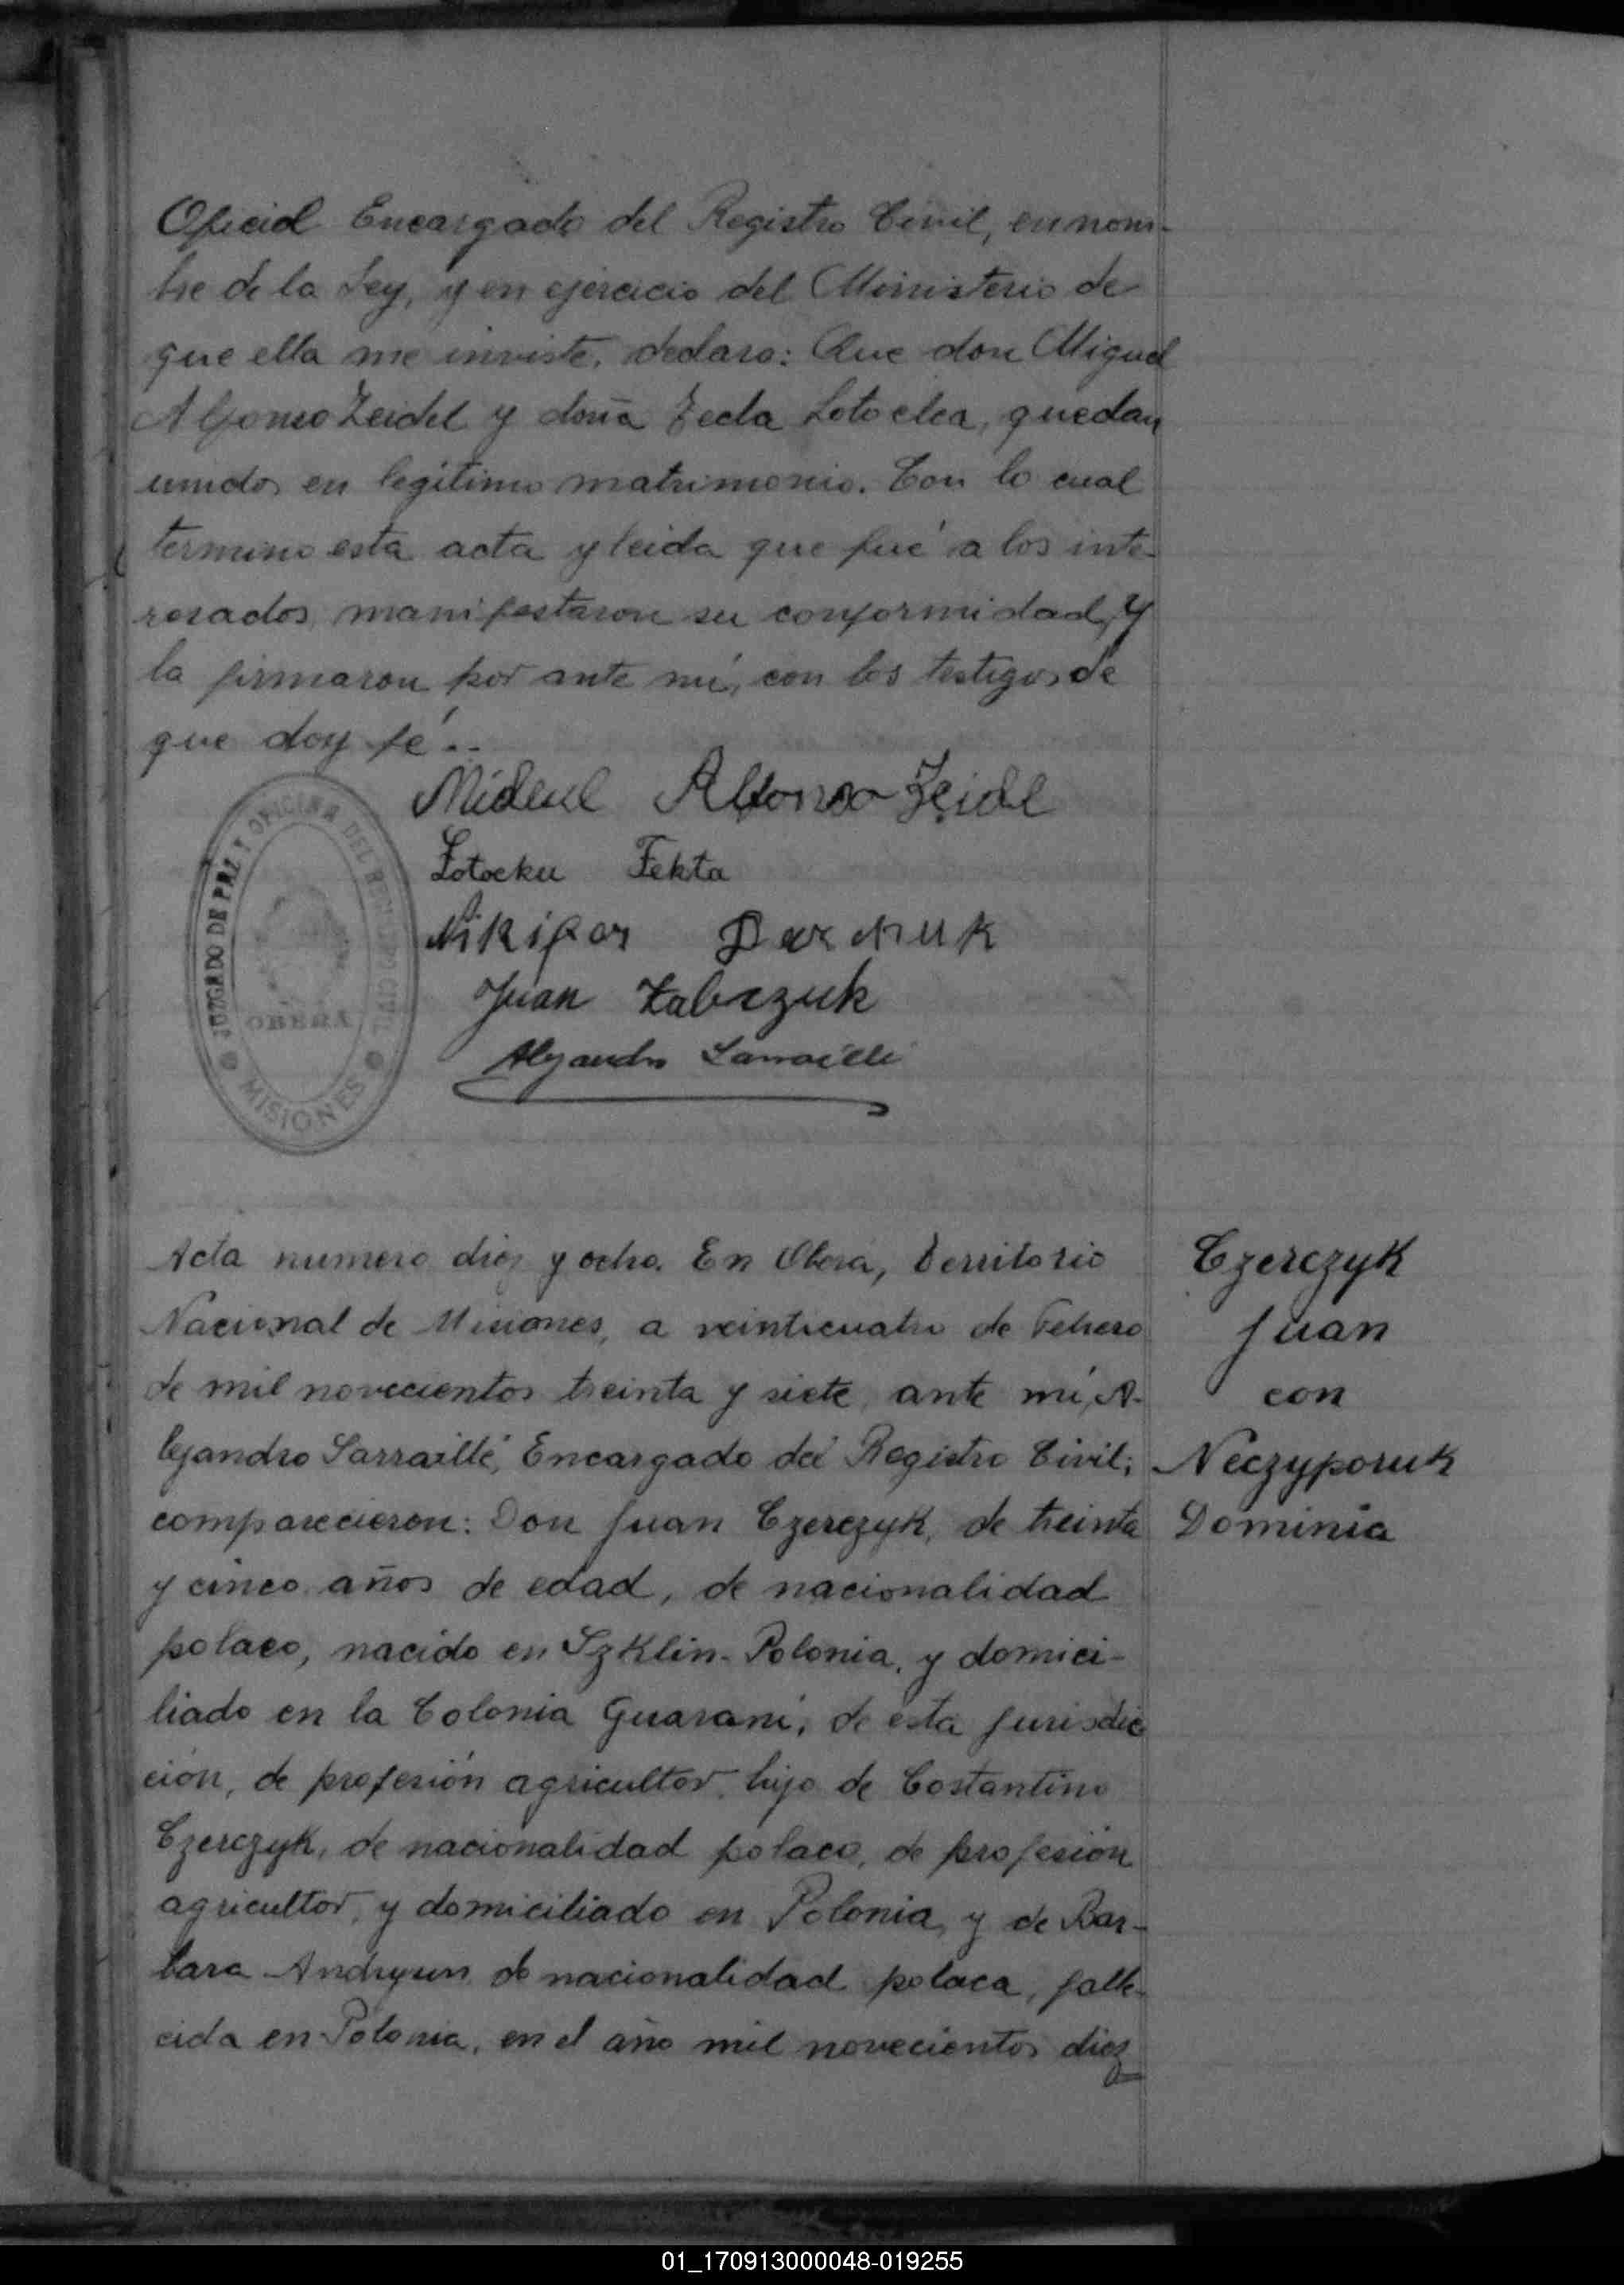 Oficial Encargado del Registro Civil, en nom-
bre de la Ley, y en ejercicio del Ministerio de
que ella me inviste, declaro: Que don Miguel
Alfonso Zeidel y doña Tecla Lotoclea, quedan
unidos en legitimo matrimonio. Con lo cual
termino esta acta y leida que fué a los inte-
resados, manifestaron su conformidad, y
la firmaron por ante mí, con los testigos de
que doy fé..
Alfonso Zeidl
Fekta
Nikifor
Juan Zabczuk
Alejandro Sarraillé
JUZGADO DE PAZ Y OFICINA DEL REGISTRO CIVIL
OBERA
MISIONES
Acta numero diez y ocho. En Obera, Territorio
Nacional de Misiones, a veinticuatro de Febrero
de mil novecientos treinta y siete, ante mí, A-
lejandro Sarraillé, Encargado del Registro Civil;
comparecieron: Don Juan Czerczyk, de treinta
y cinco años de edad, de nacionalidad
polaco, nacido en Szklin-Polonia, y domici-
liado en la Colonia Guaraní, de esta jurisdic
ción, de profesión agricultor, hijo de Costantino
Czerczyk, de nacionalidad polaco, de profesión
agricultor, y domiciliado en Polonia, y de Bar-
bara de nacionalidad polaca, falle-
cida en Polonia, en el año mil novecientos diez
Czerczyk
Juan
con
Neczyporuk
Dominia
01_170913000048-019255